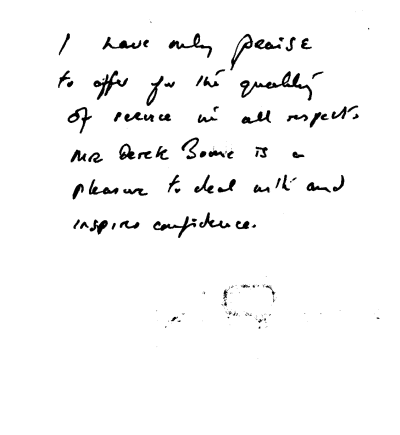 I have only praise
to offer for the quality
of service in all respects
Mr Derek is a
pleasure to deal with and
inspires confidence.